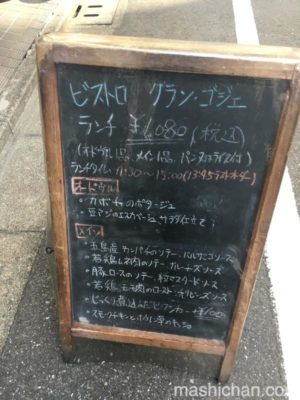 ビストロ グラン・ゴジエ
ランチ ¥1,080 (税込)
(オードヴル1品、メイン1品、パン又はライス付)
ランチタイム 11:30～15:00 (13:45ラストオーダー)
オードヴル
・カボチャのポタージュ
・豆アジのエスカベーシュ サラダ仕立て
メイン
・五島産 カンパチのソテー、バルサミコソース
・若鶏モモ肉のソテー
・豚ロースのソテー 粒マスタードソース
・若鶏モモ肉のロースト
・じっくり煮込んだ
・スモークチキンと
mashichan.co